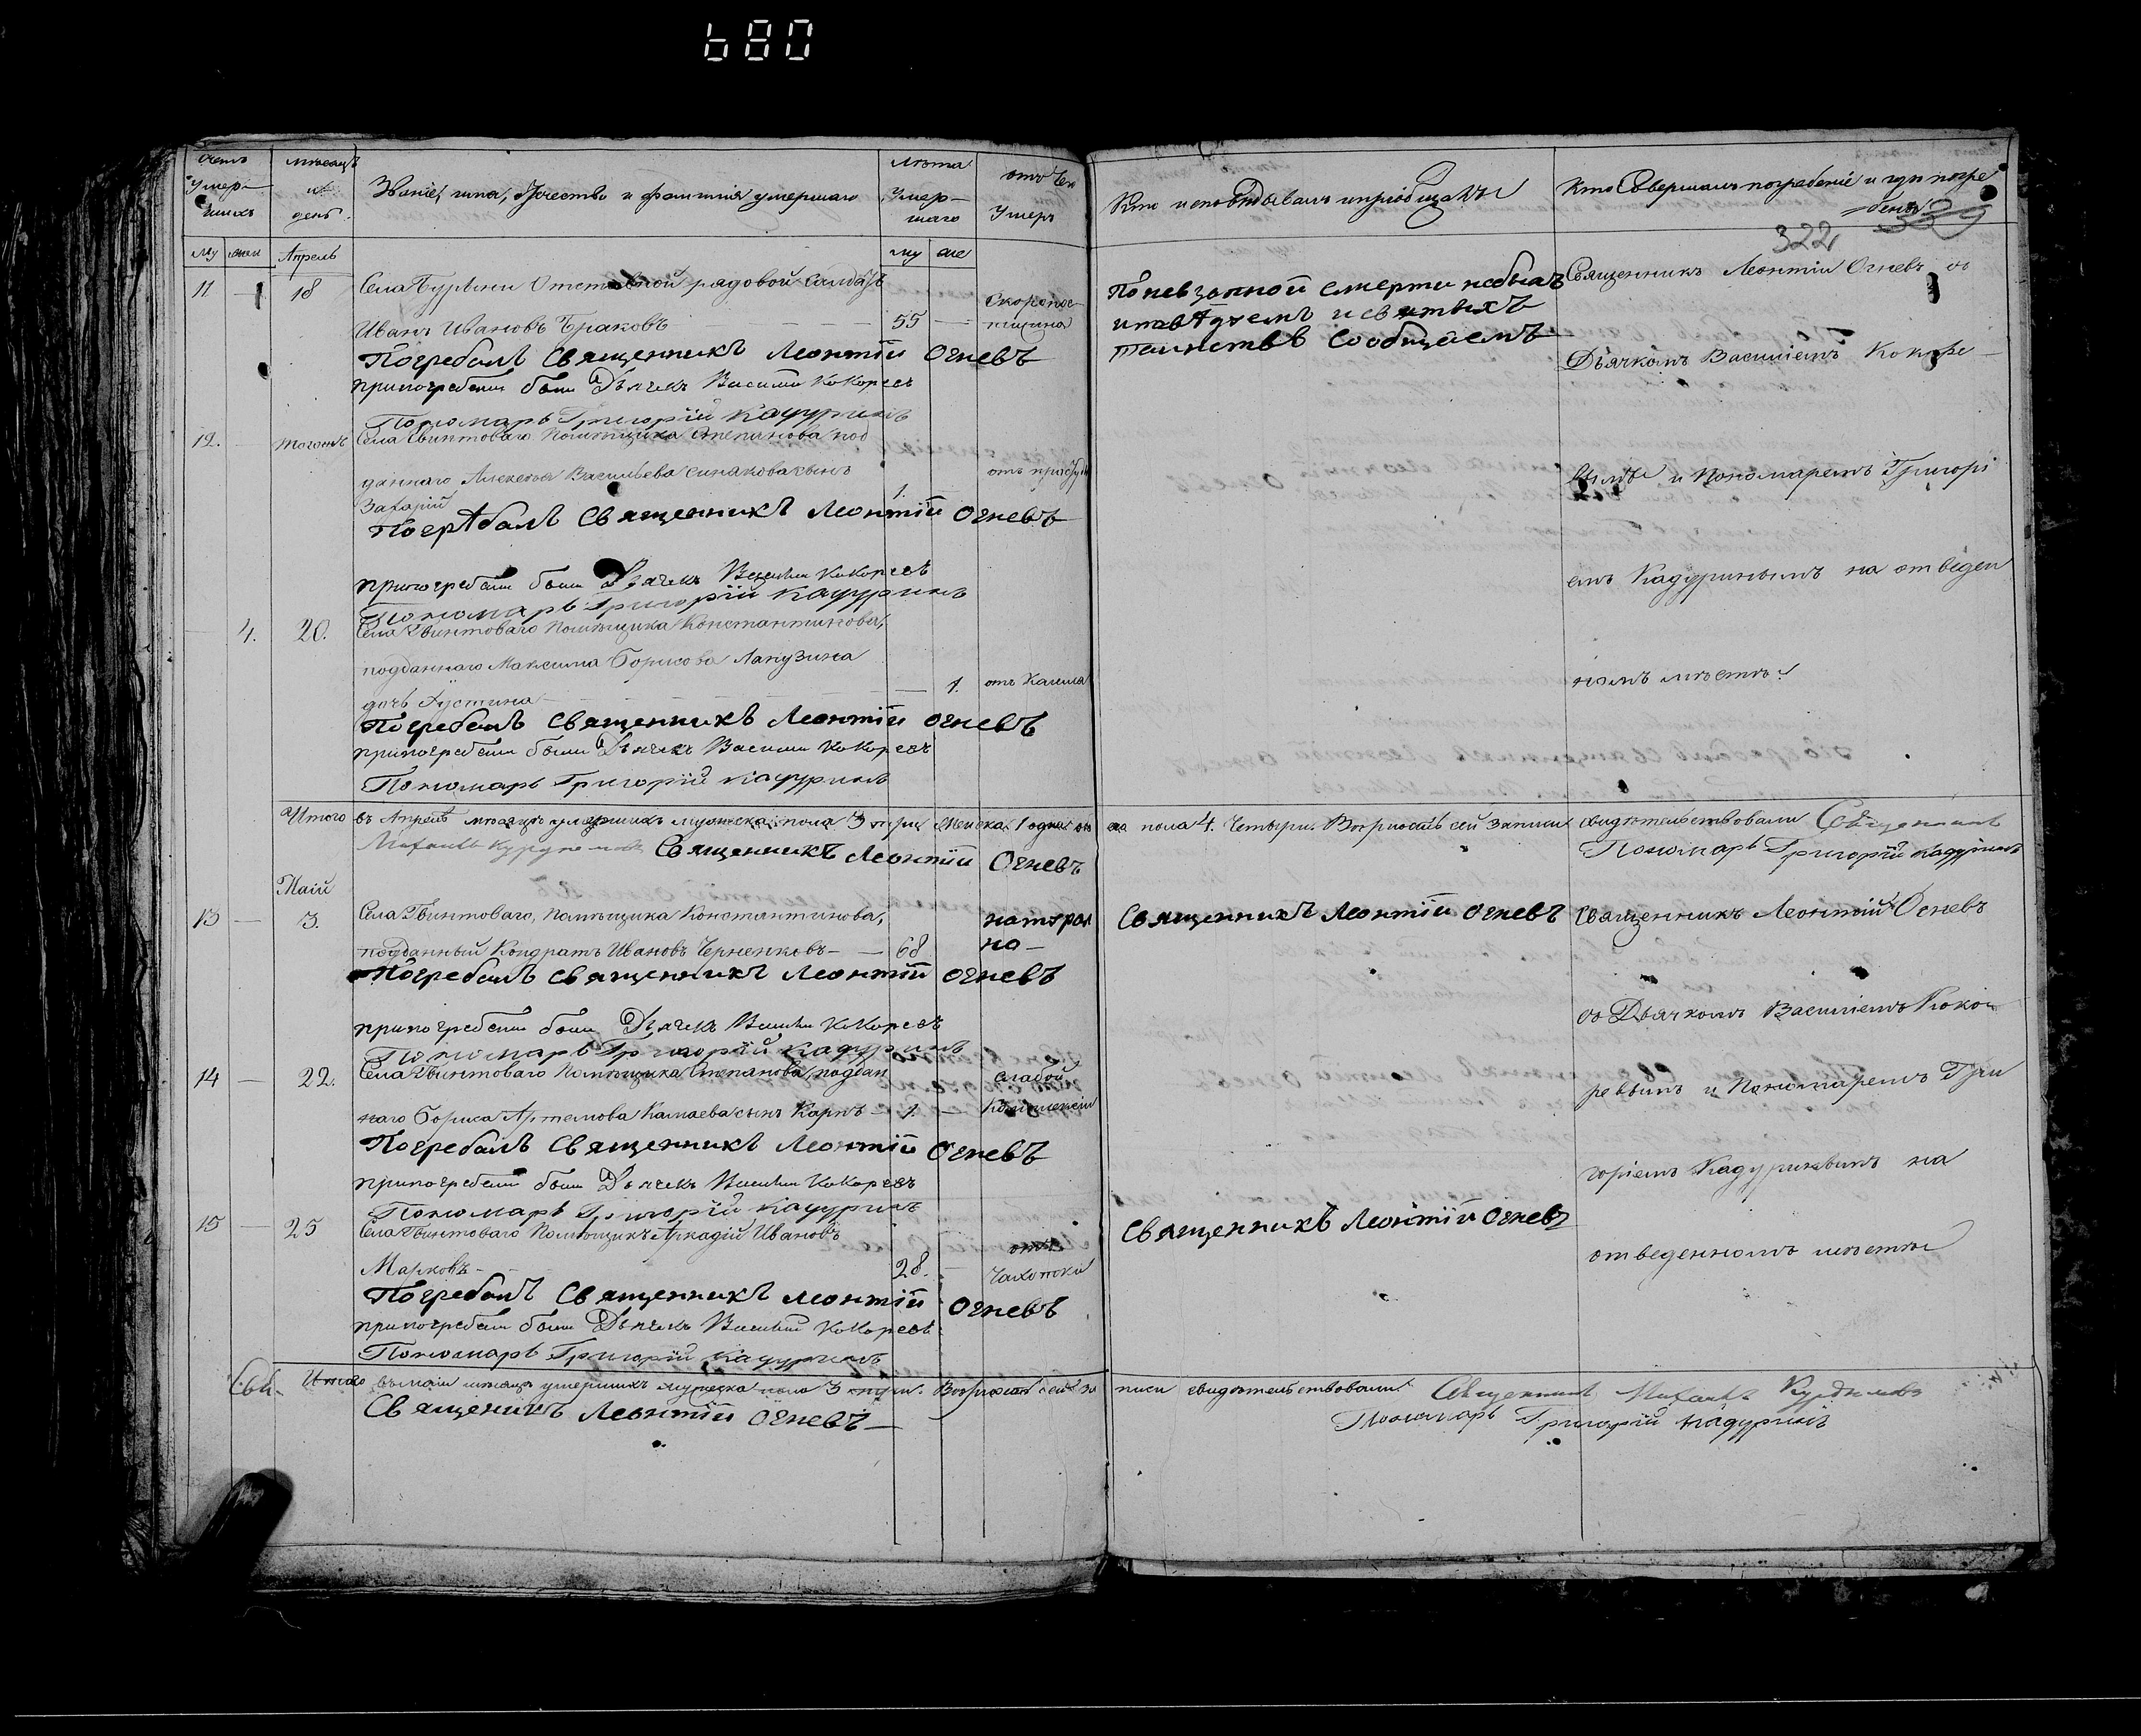 680
Счетъ умершихъ
мѣсяцъ и день
Званіе, имя, Отчество и фамилія умершаго
Лѣта Умершаго
отъ чего Умеръ
Кто исповѣдывалъ и пріобщалъ
Кто Совершалъ погребеніе и гдѣ погребенъ
322
му жен Апрель му же
11 — 18 Села Бурыни Отставной рядовой Салдатъ
Иванъ Ивановъ Браковъ — 55 — Скоропостижно
Погребалъ Священникъ Леонтій Огневъ
при погребеніи были Дьячекъ Василій Кокоревъ
Пономарь Григорій Кадуринъ
12. тогожъ Села Гвинтоваго Помѣщика Степанова под
даннаго Алексея Васильева сынъ
Захарій 1. отъ простуды
Погрѣбалъ Священникъ Леонтій Огневъ
при погребеніи были Дьячекъ Василій Кокоревъ
Пономарь Григорій Кадуринъ
4. 20. Села Гвинтоваго Помѣщика Константинова,
подданнаго Максима Борисова Лапузина
дочь Іустина — 1. отъ Кашля
Погребалъ Священникъ Леонтій Огневъ
при погребеніи были Дьячекъ Василій Кокоревъ
Пономарь Григорій Кадуринъ
Итого въ Апрелѣ мѣсяцѣ умершихъ мужеска пола 3 три Женска 1 одна
Священникъ Леонтій Огневъ
Маій
13 — 3. Села Гвинтоваго, Помѣщика Константинова,
подданный Кондратъ Ивановъ Черненковъ — 68 натурально
Погребалъ Священникъ Леонтій Огневъ
при погребеніи были Дьячекъ Василій Кокоревъ
Пономарь Григорій Кадуринъ
14 — 22. Села Гвинтоваго Помѣщика Степанова, поддан
наго Бориса Артемова Камаева сынъ Карпъ — 1. — слабой Комплекціи
Погребалъ Священникъ Леонтій Огневъ
при погребеніи были Дьячекъ Василій Кокоревъ
Пономарь Григорій Кадуринъ
15 — 25 Села Гвинтоваго Помѣщикъ Аркадій Ивановъ
Марковъ — 28. — отъ Чахотки
Погребалъ Священникъ Леонтій Огневъ
при погребеніи были Дьячекъ Василій Кокоревъ
Пономарь Григорій Кадуринъ
Итого въ маіи мѣсяцѣ умершихъ мужеска пола 3 три. Вѣрность сей за
Священикъ Леонтій Огневъ
По невзапной смерти не былъ
исповѣдуемъ и святыхъ
таинствъ сообщаемъ
Священникъ Леонтій Огневъ съ
Дьячкомъ Василіемъ Кокоре
вымъ и Пономаремъ Григорі
емъ Кадуринымъ на отведен
номъ мѣстѣ
пола 4. Четыри. Вѣрность сей записи свидѣтельствовали Священникъ
Пономарь Григорій Кадуринъ
Священникъ Леонтій Огневъ
Священникъ Леонтій Огневъ
съ Дьячкомъ Василіемъ Коко
ревымъ и Пономаремъ Гри
горіемъ Кадуринымъ на
отведенномъ мѣстѣ
Священникъ Леонтій Огневъ
писи свидѣтельствовали Священникъ Михаилъ
Пономарь Григорій Кадуринъ